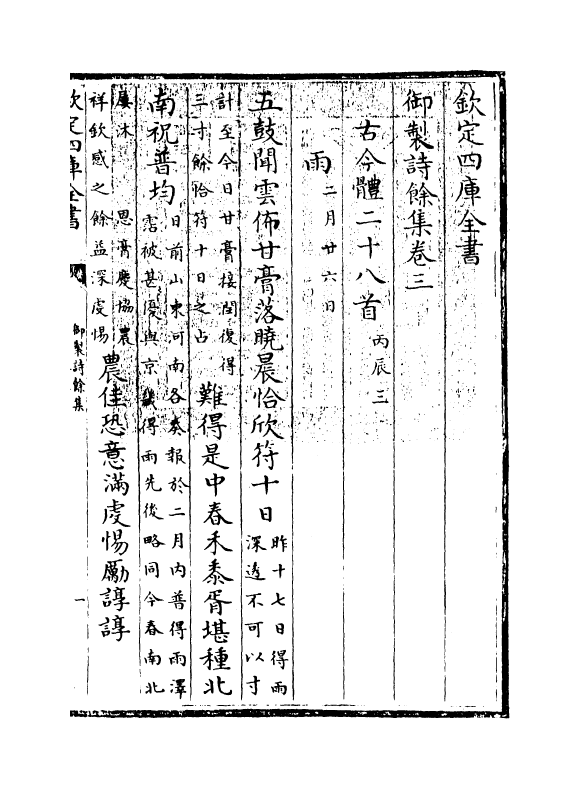 欽定四庫全書
御製詩餘集卷三
古今體二十八首 丙辰三
雨 二月廿六日
五鼓聞雲佈甘膏落曉晨恰欣符十日 昨十七日得雨深透不可以寸
計至今日甘膏接閏復得三寸餘恰符十日之占 難得是中春禾黍胥堪種北
南祝普均 日前山東河南各奏報於二月內普得雨澤霑被甚優與京畿得雨先後略同今春南北
屢沐 恩膏慶協農祥欽感之餘益深虔惕 農佳恐意滿虔惕勵諄諄
欽定四庫全書 御製詩餘集 一